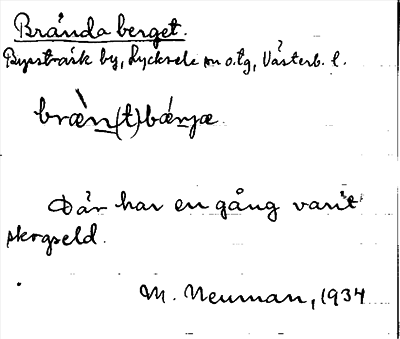 Brända berget.
Byssträsk by, Lycksele sn o. tg, Västerb. l.
bræ̀n(t)bǽrjæ
Där har en gång varit
skogseld.
M. Neuman, 1934